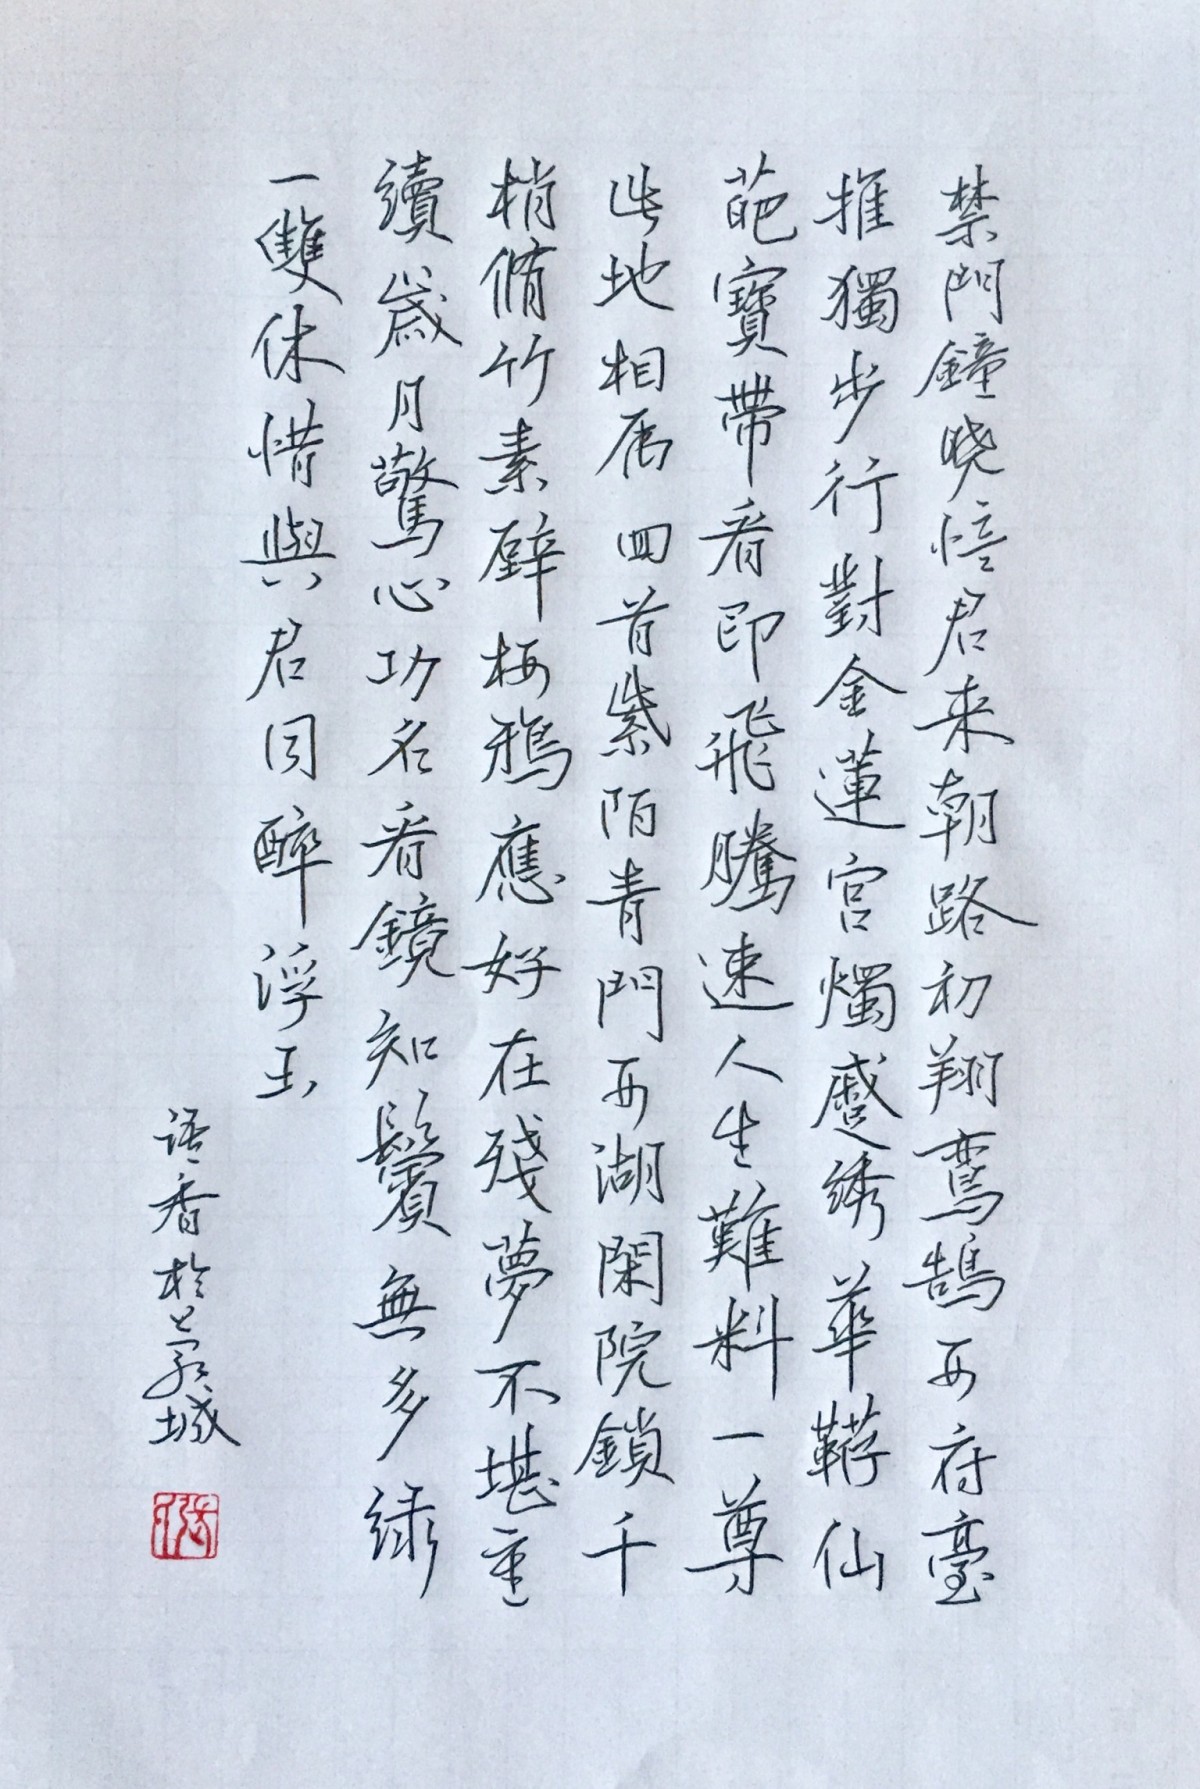 禁門鐘晓憶君来朝路初翔鸞鵠西府臺
推獨步行對金蓮宮燭蹙绣華韉仙
葩寶帶看即飛騰速人生難料一尊
此地相属回首紫陌青門西湖閑院鎖千
梢脩竹素壁栖鴉應好在殘夢不堪重
續歲月驚心功名看鏡知鬢無多緑
一雙休惜與君同醉浮玉
语香於城